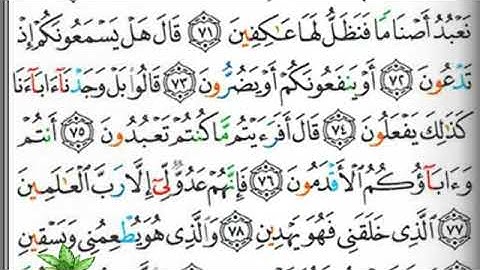 نَعْبُدُ أَصْنَامًا فَنَظَلُّ لَهَا عَٰكِفِينَ ٧١ قَالَ هَلْ يَسْمَعُونَكُمْ إِذْ
تَدْعُونَ ٧٢ أَوْ يَنفَعُونَكُمْ أَوْ يَضُرُّونَ ٧٣ قَالُوا۟ بَلْ وَجَدْنَآ ءَابَآءَنَا
كَذَٰلِكَ يَفْعَلُونَ ٧٤ قَالَ أَفَرَءَيْتُم مَّا كُنتُمْ تَعْبُدُونَ ٧٥ أَنتُمْ
وَءَابَآؤُكُمُ ٱلْأَقْدَمُونَ ٧٦ فَإِنَّهُمْ عَدُوٌّ لِّىٓ إِلَّا رَبَّ ٱلْعَٰلَمِينَ
٧٧ ٱلَّذِى خَلَقَنِى فَهُوَ يَهْدِينِ ٧٨ وَٱلَّذِى هُوَ يُطْعِمُنِى وَيَسْقِينِ